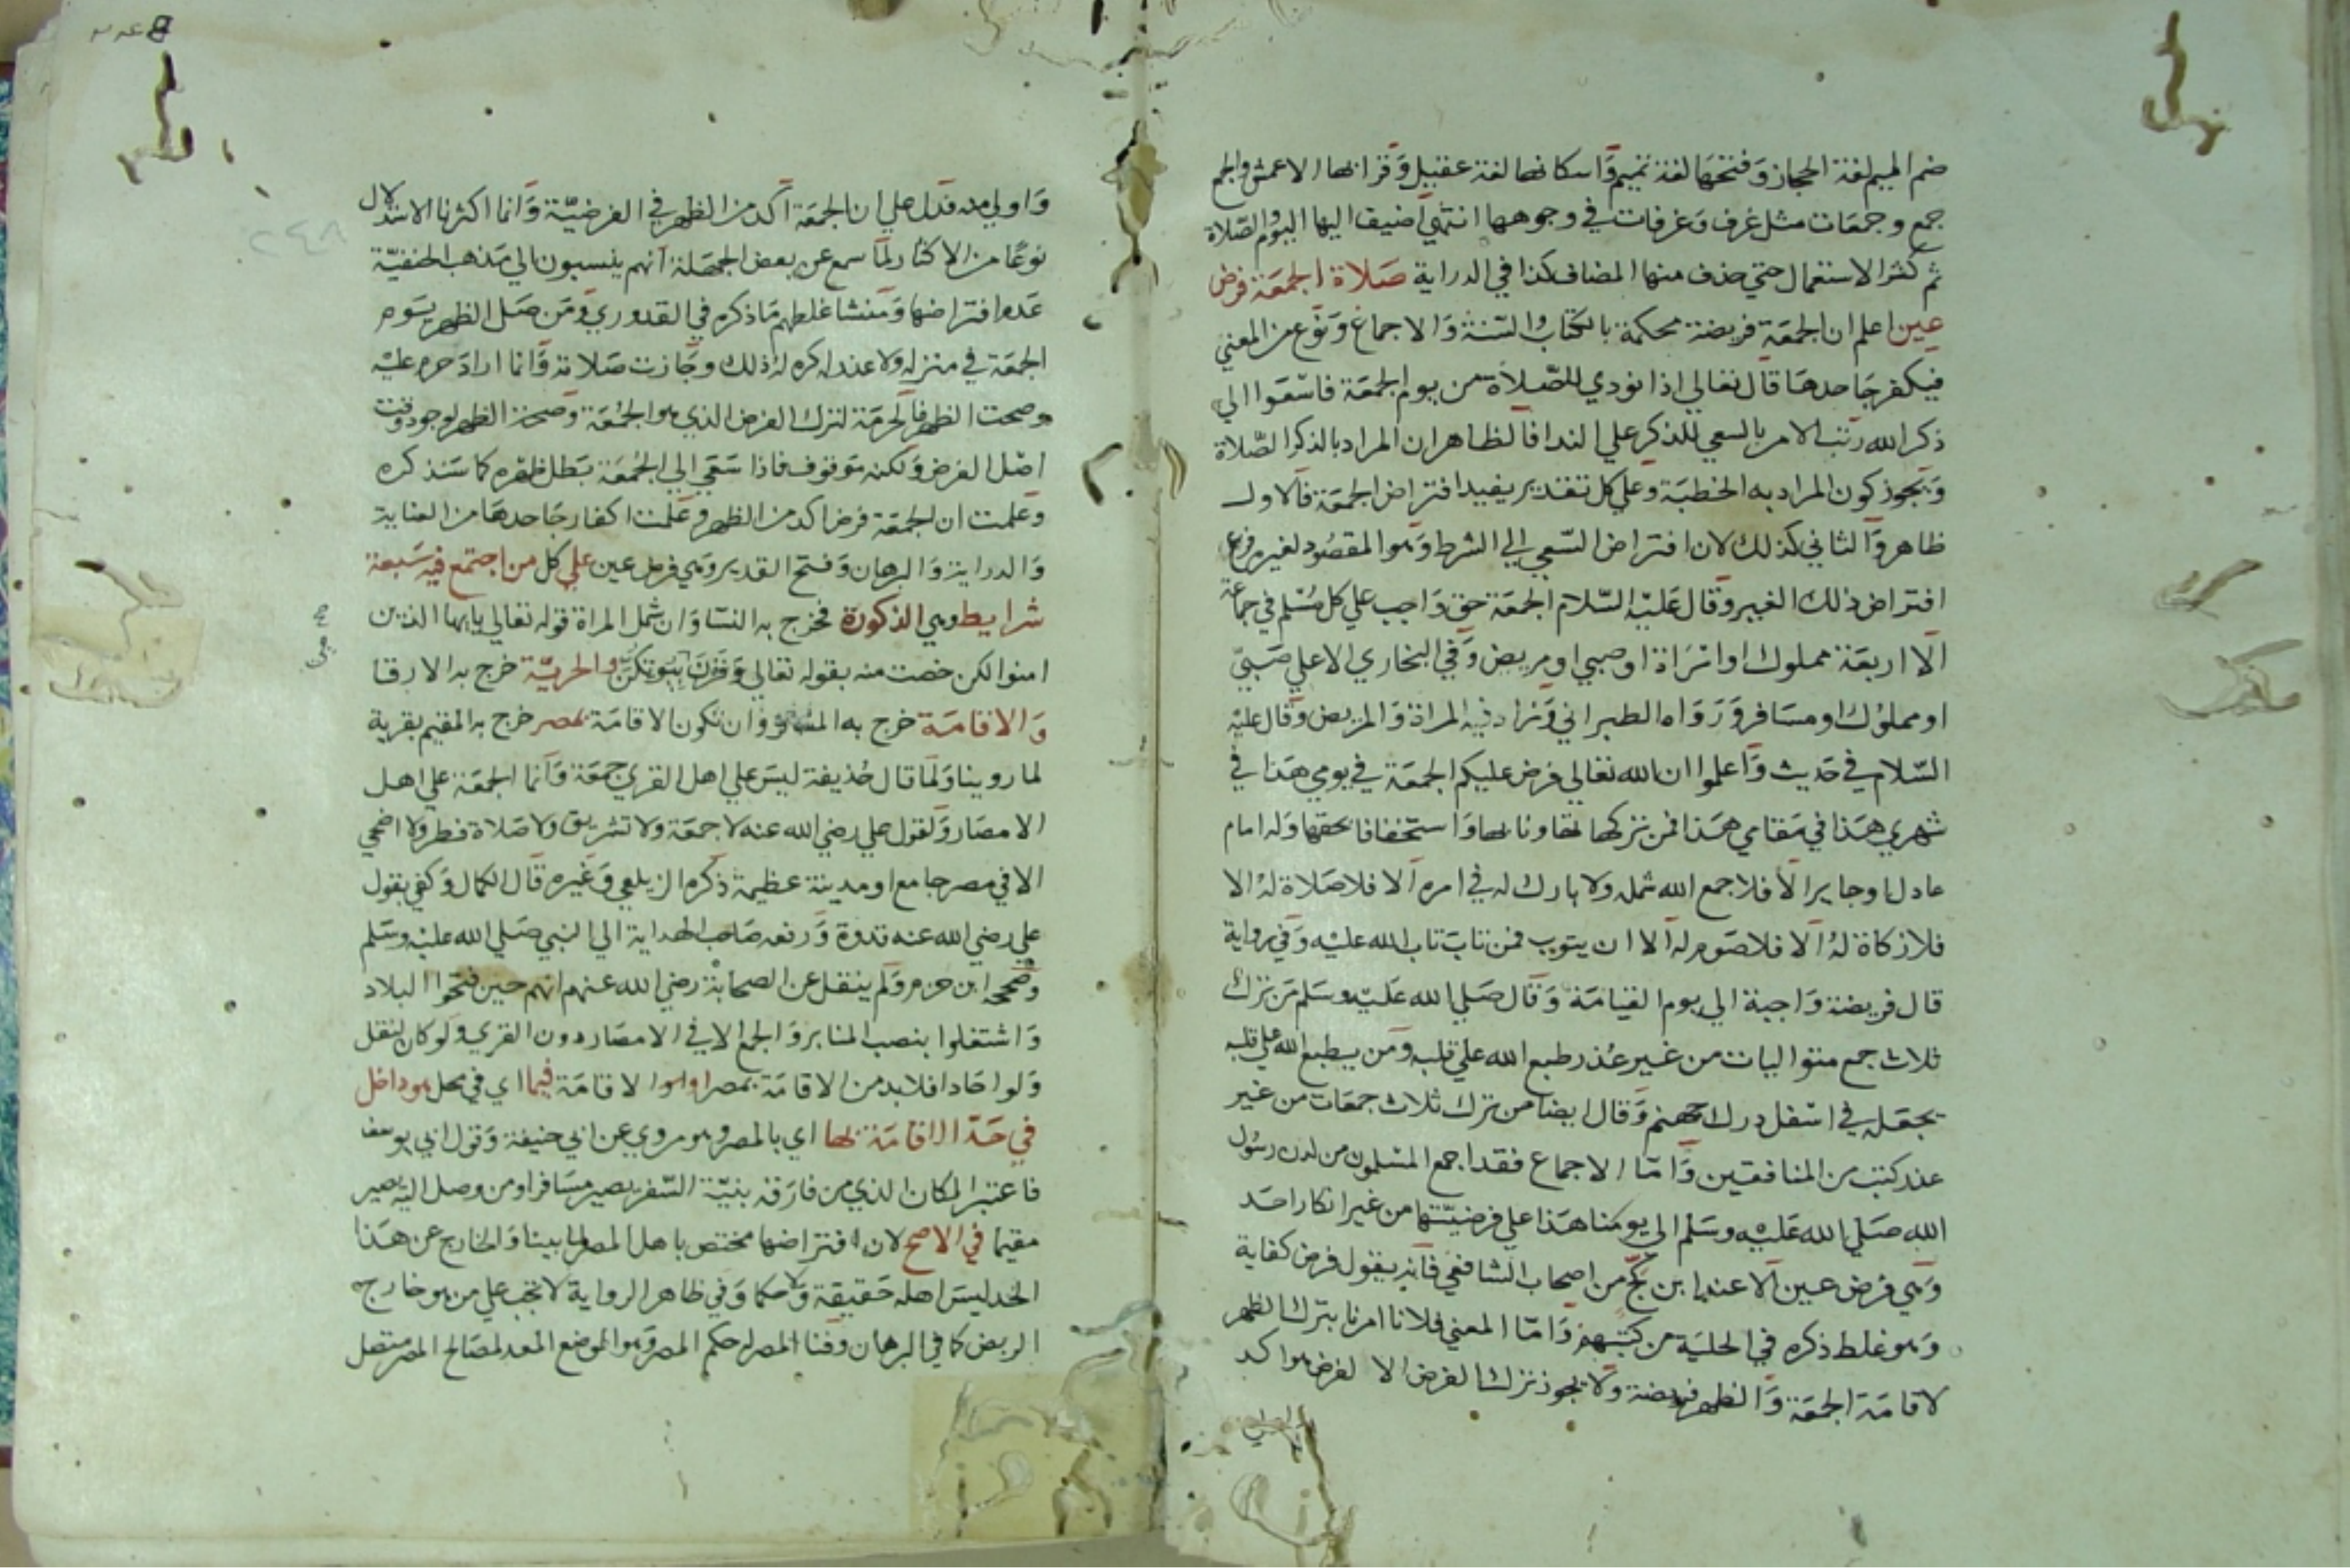 ضم الميم لغة الحجاز وفتحها لغة تميم واسكانها لغة عقيل وقرا بها الاعمش والجمع
جمع وجمعات مثل غرف وغرفات في وجوهها انتهي اضيف اليها اليوم والصلاة
ثم كثر الاستعمال حتي حذف منها المضاف كذا في الدراية صلاة الجمعة فرض
عين اعلم ان الجمعة فريضة محكمة بالكتاب والسنة والاجماع ونوع من المعني
فيكفر جاحدها قال تعالي اذا نودي للصلاة من يوم الجمعة فاسعوا الي
ذكر الله رتب الامر بالسعي للذكر علي الندا فالظاهر ان المراد بالذكر الصلاة
ويجوز كون المراد به الخطبة وعلي كل تقدير يفيد افتراض الجمعة فالاول
ظاهر والثاني كذلك لان افتراض السعي الي الشرط وهو المقصود لغيره فرع
افتراض ذلك الغير وقال عليه السلام الجمعة حق واجب علي كل مسلم في جماعة
الا اربعة مملوك او امراة او صبي او مريض وفي البخاري الا علي صبي
او مملوك او مسافر ورواه الطبراني وزاد فيه المراة والمريض وقال عليه
السلام في حديث واعلموا ان الله تعالي فرض عليكم الجمعة في يومي هذا في
شهري هذا في مقامي هذا فمن تركها تهاونا بها واستخفافا بحقها وله امام
عادل او جاير الا فلا جمع الله شمله ولا بارك له في امره الا فلا صلاة له الا
فلا زكاة له الا فلا صوم له الا ان يتوب فمن تاب تاب الله عليه وفي رواية
قال فريضة واجبة الي يوم القيامة وقال صلي الله عليه وسلم من ترك
ثلاث جمع متواليات من غير عذر طبع الله علي قلبه ومن يطبع الله علي قلبه
يجعله في اسفل درك جهنم وقال ايضا من ترك ثلاث جمعات من غير
عذر كتب من المنافقين واما الاجماع فقد اجمع المسلمون من لدن رسول
الله صلي الله عليه وسلم الي يومنا هذا علي فرضيتها من غير انكار احد
وهي فرض عين الا عند ابن كج من اصحاب الشافعي فانه يقول فرض كفاية
وهو غلط ذكره في الحلية من كتبهم واما المعني فلانا امرنا بترك الظهر
لاقامة الجمعة والظهر فريضة ولا يجوز ترك الفرض الا لفرض هو اكد
واولي
واولي منه فدل علي ان الجمعة آكد من الظهر في الفرضية وانما اكثرنا الاستدلال
نوعا من الاكثار لما سمع عن بعض الجهلة انهم ينسبون الي مذهب الحنفية
عدم افتراضها ومنشا غلطهم ما ذكره في القدوري ومن صلي الظهر يوم
الجمعة في منزله ولا عذر له كره له ذلك وجازت صلاته وانما اراد حرم عليه
وصحت الظهر فالحرمة لترك الفرض الذي هو الجمعة وصحة الظهر لوجود وقت
اصل الفرض ولكنه موقوف فاذا سعي الي الجمعة بطل ظهره كما سنذكره
وعلمت ان الجمعة فرض اكد من الظهر وعلمت اكفار جاحدها من العناية
والدراية والبرهان وفتح القدير وهي فرض عين علي كل من اجتمع فيه سبعة
شرايط وهي الذكورة فخرج به النسا وان شمل المراة قوله تعالي يا ايها الذين
امنوا لكن خصت منه بقوله تعالي وقرن في بيوتكن والحرية خرج به الارقا
والاقامة خرج به المسافر وان تكون الاقامة بمصر خرج به المقيم بقرية
لما روينا ولما قال حذيفة ليس علي اهل القري جمعة وانما الجمعة علي اهل
الامصار ولقول علي رضي الله عنه لا جمعة ولا تشريق ولا صلاة فطر ولا اضحي
الا في مصر جامع او مدينة عظيمة ذكره الزيلعي وغيره قال الكمال وكفي بقول
علي رضي الله عنه قدوة ورفعه صاحب الهداية الي النبي صلي الله عليه وسلم
وصححه ابن حزم ولم ينقل عن الصحابة رضي الله عنهم انهم حين فتحوا البلاد
واشتغلوا بنصب المنابر والجمع الا في الامصار دون القري ولو كان لنقل
ولو احادا فلا بد من الاقامة بمصر او الاقامة فيما اي في محل هو داخل
في حد الاقامة بها اي بالمصر وهو مروي عن ابي حنيفة وقول ابي يوسف
فاعتبر المكان الذي من فارقه بنية السفر يصير مسافرا ومن وصل اليه يصير
مقيما في الاصح لان افتراضها مختص باهل المصر لما بينا والخارج عن هذا
الحد ليس اهله حقيقة ولا حكما وفي ظاهر الرواية لا تجب علي من هو خارج
الربض كما في البرهان وفنا المصر له حكم المصر وهو الموضع المعد لمصالح المصر متصل